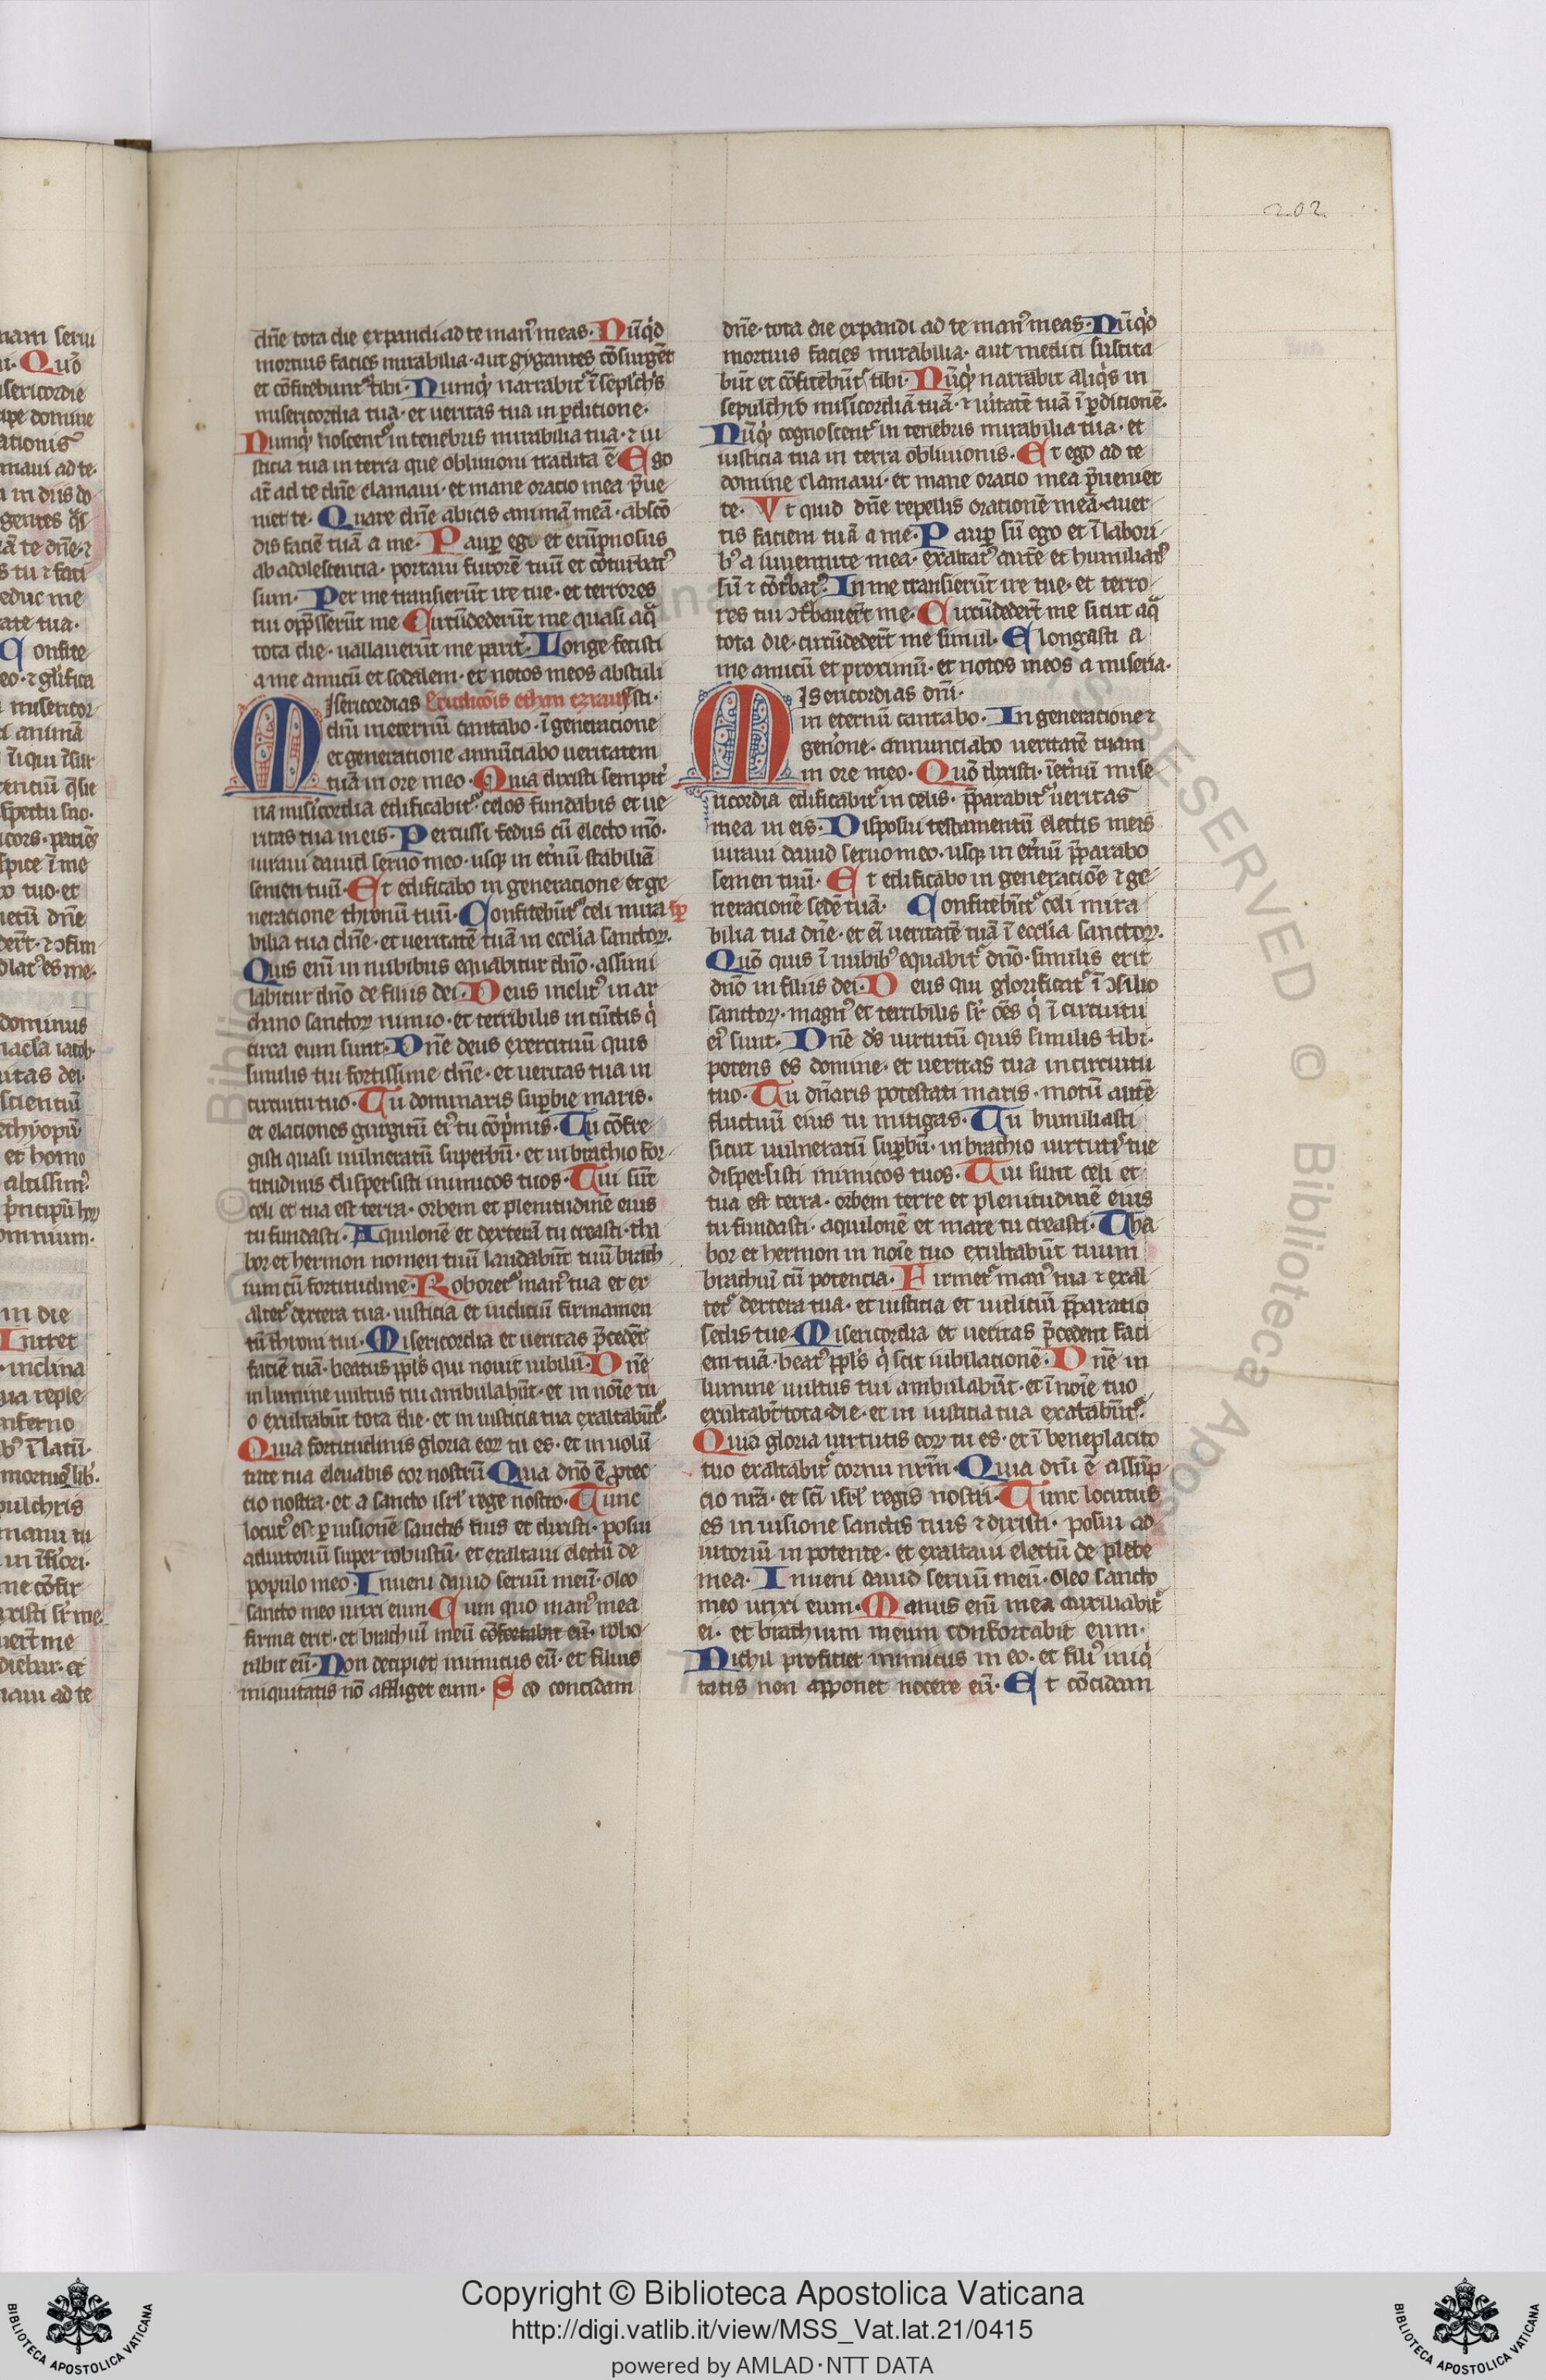 202
dn̄e tota die expandi ad te man᷒ meas· Nūq͛d
mortuis facies mirabilia· aut gygantes cōsurgēt
et cōfitebunt᷒ tibi· Numq͛ narrabit᷒ ī seplch͛s
misericordia tua· et ueritas tua in ꝑditione·
Numq͛ noscent᷒ in tenebris mirabilia tua· ⁊ iu
sticia tua in terra que obliuioni tradita ē Ego
at̄ ad te dn̄e clamaui· et mane oratio mea p̄ue
niet te· Quare dn̄e abicis animā meā· abscō
dis faciē tuā a me· Paup̱ ego et erūpnosus
ab adolescentia· portaui furorē tuū et cōturbat᷒
sum· Per me transierūt ire tue· et terrores
tui opp̄sserūt me Circūdederūt me quasi aq̄
tota die· uallauerūt me parit᷒· Longe fecisti
a me amicū et sodalem· et notos meos abstuli
sti· Eruditiōis ethan ezrait
Misericordias
dn̄i in eternū cantabo· ī generatione
et generatione annūciabo ueritatem
tuā in ore meo· Quia dixisti sempit᷒
na mis͛icordia edificabit᷒ celos fundabis et ue
ritas tua in eis· Percussi fedus cū electo mō·
iuraui dauid seruo meo· usq̱ in et͛nū stabiliā
semen tuū· Et edificabo in generatione et ge
neratione thronū tuū· Confitebūt᷒ celi mira
bilia tua dn̄e· et ueritatē tuā in ecclīa sanctoꝝ·
Quis enī in nubibus equabitur dn̄o· assimi
labitur dn̄o de filiis dei· Deus inclit᷒ in ar
chano sanctoꝝ nimio· et terribilis in cūctis q͛
circa eum sunt· Dn̄e deus exercituū quis
similis tui fortissime dn̄e· et ueritas tua in
circuitu tuo· Tu dominaris sup̱bie maris·
et elationes gurgitū ei᷒ tu cōp͛mis· Tu cōfre
gisti quasi uulneratū superbū· et in brachio for
titudinis dispersisti inimicos tuos· Tui sūt
celi et tua est terra· orbem et plenitudinē eius
tu fundasti· Aquilonē et dexterā tu creasti· tha
bor et hermon nomen tuū laudabūt tuū brach
ium cū fortitudine· Roboret᷒ man᷒ tua et ex
altet᷒ dextera tua· iusticia et iudiciū firmamen
tū throni tui· Misericordia et ueritas p̄cedēt
faciē tuā· beatus ppl̄s qui nouit iubilū· Dn̄e
in lumine uultus tui ambulabūt· et in noīe tu
o exultabūt tota die· et in iusticia tua exaltabūt᷒·
Quia fortitudinis gloria eoꝝ tu es· et in uolū
tate tua eleuabis cor nostrū Quia dn̄o ē ꝓtec
cio nostra· et a sancto isrl̄ rege nostro· Tunc
locut᷒ es ꝑ uisionē sanctis tuis et dixisti· posui
adiutoriū super robustū· et exaltaui electū de
populo meo· Inueni dauid seruū meū· oleo
sancto meo unxi eum Cum quo man᷒ mea
firma erit· et brachiū meū cōfortabit eū· robo
rabit eū· Non decipiet inimicus eū· et filius
iniquitatis nō affliget eum· Sed concidam
dn̄e· tota die expandi ad te man᷒ meas· Nūq͛d
mortuis facies mirabilia· aut medici suscita
būt et cōfitebūt᷒ tibi· Nūq͛ narrabit aliq͛s in
sepulchro mis͛icordiā tuā· ⁊ u͛itatē tuā ī ꝑditionē·
Nūq͛ cognoscent᷒ in tenebris mirabilia tua· et
iusticia tua in terra obliuionis· Et ego ad te
domine clamaui· et mane oratio mea p̄ueniet
te· Vt quid dn̄e repellis orationē meā· auer
tis faciem tuā a me· Paup̱ sū ego et ī labori
b᷒ a iuuentute mea· exaltat᷒ autē et humiliat᷒
sū ⁊ cōt͛bat᷒· In me transierūt ire tue· et terro
res tui ↄt͛bauer̄t me· Circūdeder̄t me sicut aq̄
tota die· circūdeder̄t me simul· Elongasti a
me amicū et proximū· et notos meos a miseria·
Misericordias dn̄i·
in eternū cantabo· In generatione ⁊
gen͛one· annunciabo ueritatē tuam
in ore meo· Quō dixisti· īet͛nū mise
ricordia edificabit᷒ in celis· p̄parabit᷒ ueritas
mea in eis· Disposui testamentū electis meis
iuraui dauid seruo meo· usq̱ in et͛nū p̄parabo
semen tuū· Et edificabo in generatiōe ⁊ ge
nerationē sedē tuā· Confitebūt᷒ celi mira
bilia tua dn̄e· et eī ueritatē tuā ī ecclīa sanctoꝝ·
Quō quis ī nubib᷒ equabit᷒ dn̄o· similis erit
dn̄o in filiis dei· Deus qui glorificat᷒ ī ↄsilio
sanctoꝝ· magn᷒ et terribilis sr̄ oēs q͛ ī circuitu
ei᷒ sunt· Dn̄e d͛s uirtutū quis similis tibi·
potens es domine· et ueritas tua in circuitu
tuo· Tu dn̄aris potestati maris· motū autē
fluctuū eius tu mitigas· Tu humiliasti
sicut uulneratū sup̱bū· in brachio uirtut᷒ tue
dispersisti inimicos tuos· Tui sunt celi et
tua est terra· orbem terre et plenitudinē eius
tu fundasti· aquilonē et mare tu creasti· Tha
bor et hermon in noīe tuo exultabūt tuum
brachiū cū potencia· Firmet᷒ man᷒ tua ⁊ exal
tet᷒ dextera tua· et iusticia et iudiciū p̄paratio
sedis tue· Misericordia et ueritas p̄cedent faci
em tuā· beat᷒ ppl̄s q͛ scit iubilationē· Dn̄e in
lumine uultus tui ambulabūt· et ī noīe tuo
exultabt̄ tota die· et in iusticia tua exaltabūt᷒·
Quia gloria uirtutis eoꝝ tu es· et ī beneplacito
tuo exaltabit᷒ cornu nrm̄· Quia dn̄i ē assūp
cio nrā· et scī isrl̄ regis nostri· Tunc locutus
es in uisione sanctis tuis ⁊ dixisti· posui ad
iutoriū in potente· et exaltaui electū de plebe
mea· Inueni dauid seruū meū· oleo sancto
meo unxi eum· Manus enī mea auxiliabit᷒
ei· et brachium meum confortabit eum·
Nichil proficiet inimicus in eo· et fili᷒ iniq͛
tatis non apponet nocere eū· Et cōcidam
Copyright © Biblioteca Apostolica Vaticana
http://digi.vatlib.it/view/MSS_Vat.lat.21/0415
powered by AMLAD·NTT DATA
BIBLIOTECA APOSTOLICA VATICANA
BIBLIOTECA APOSTOLICA VATICANA